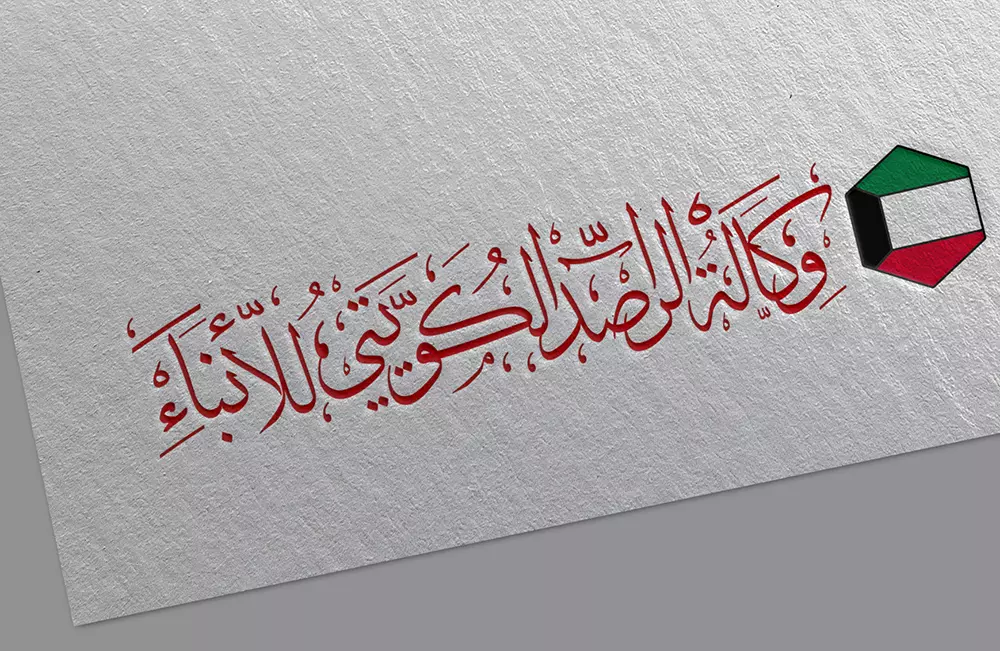 وكالة الراصد الكويتي للأنباء